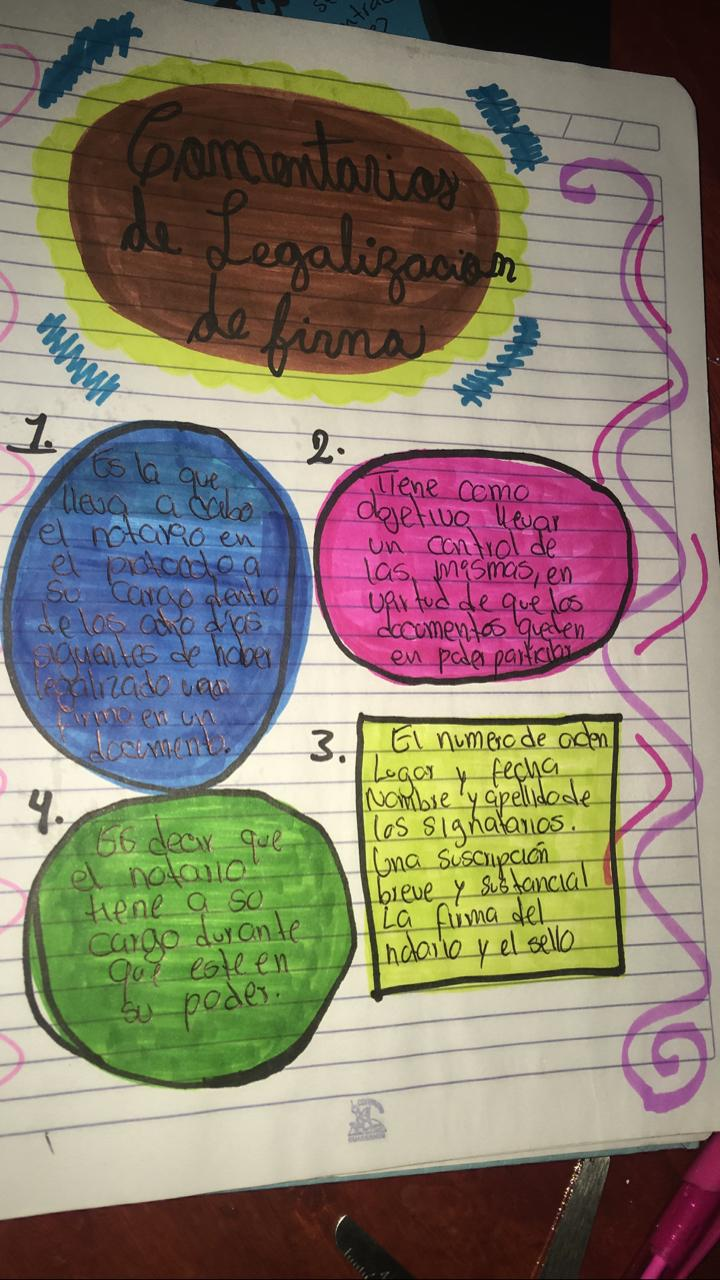 Comentarios
de Legalizacion
de firma
1.
Es la que
lleva a cabo
el notario en
el protocolo a
su cargo dentro
de los ocho dias
siguientes de haber
legalizado una
firma en un
documento.
2.
Tiene como
objetivo llevar
un control de
las mismas, en
virtud de que los
documentos queden
en poder particular
3.
El numero de orden
Lugar y fecha
Nombre y apellido de
los signatarios.
Una suscripción
breve y sustancial
La firma del
notario y el sello
4.
Es decir que
el notario
tiene a su
cargo durante
que este en
su poder.